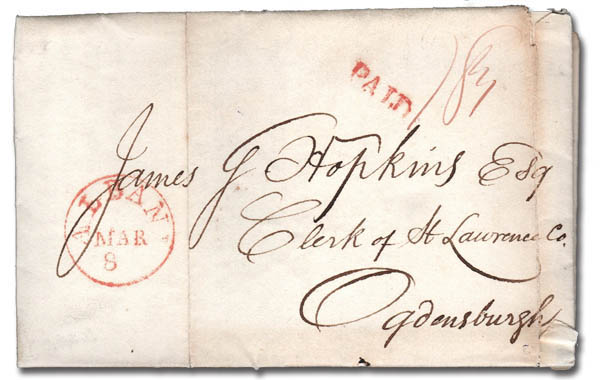 PAID
James G Hopkins Esq
ALBANY
MAR
8
Clerk of St Lawrence Co.
Ogdensburgh